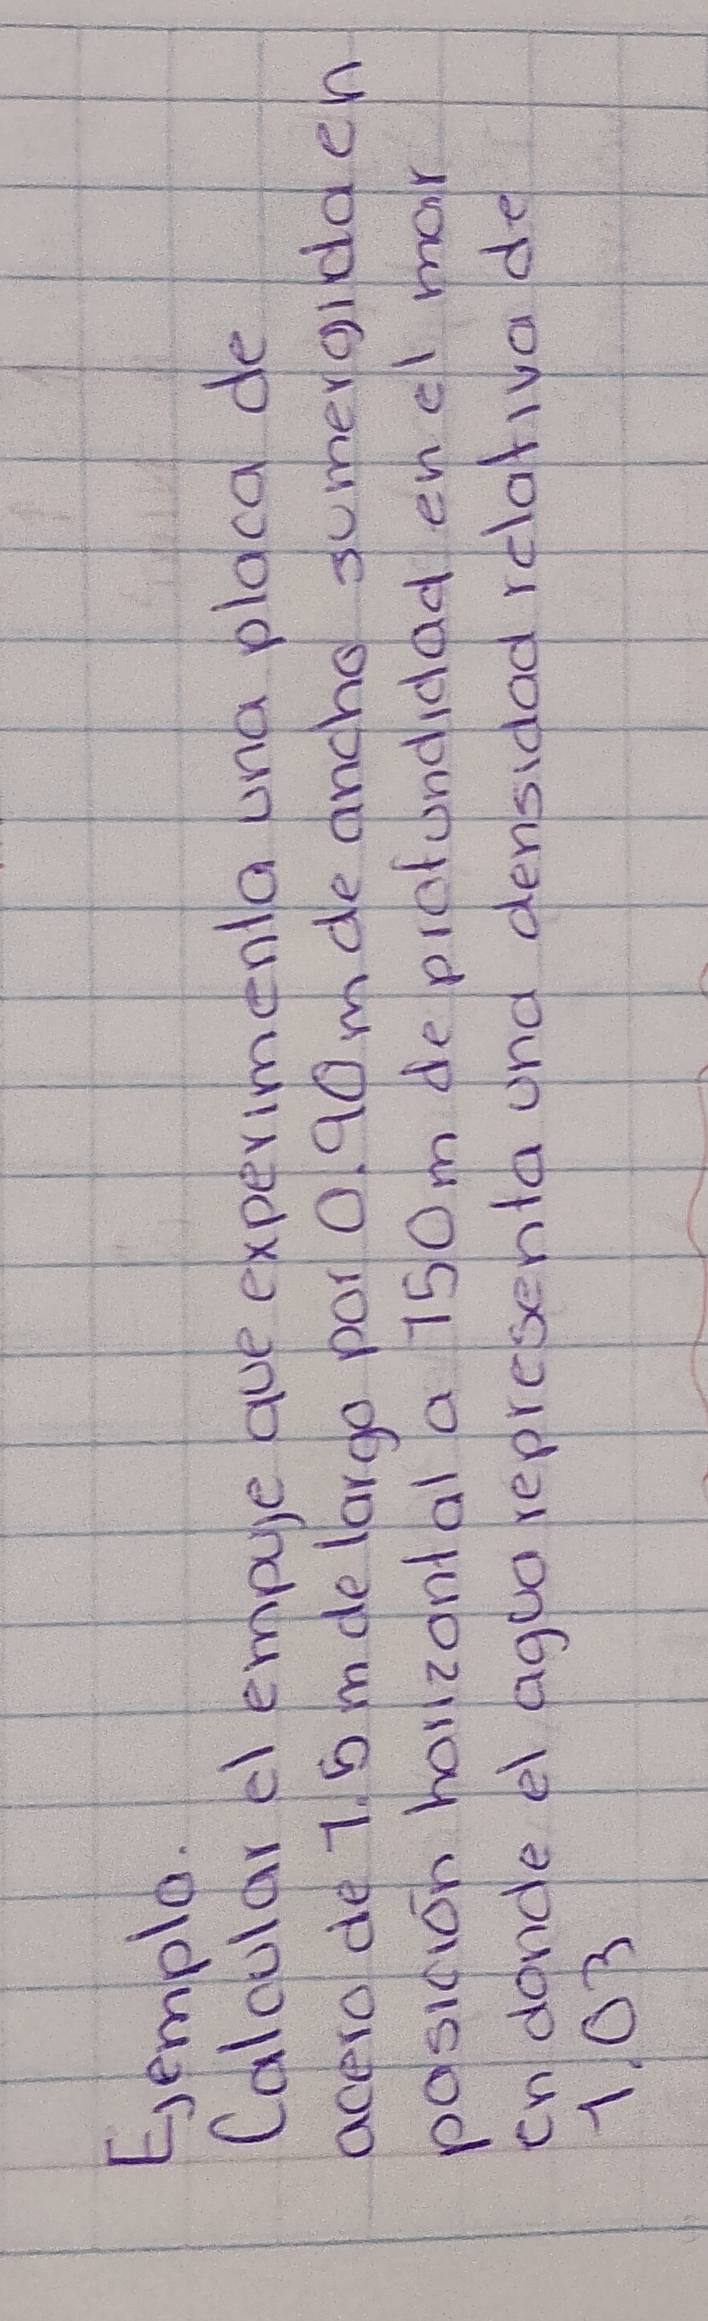 Ejemplo.
Calcular el empuje que experimenta una placa de
acero de 1.5 m de largo por 0.90 m de ancho sumergida en
posición horizontal a 150 m de profundidad en el mar
en donde el agua representa una densidad relativa de
1.03